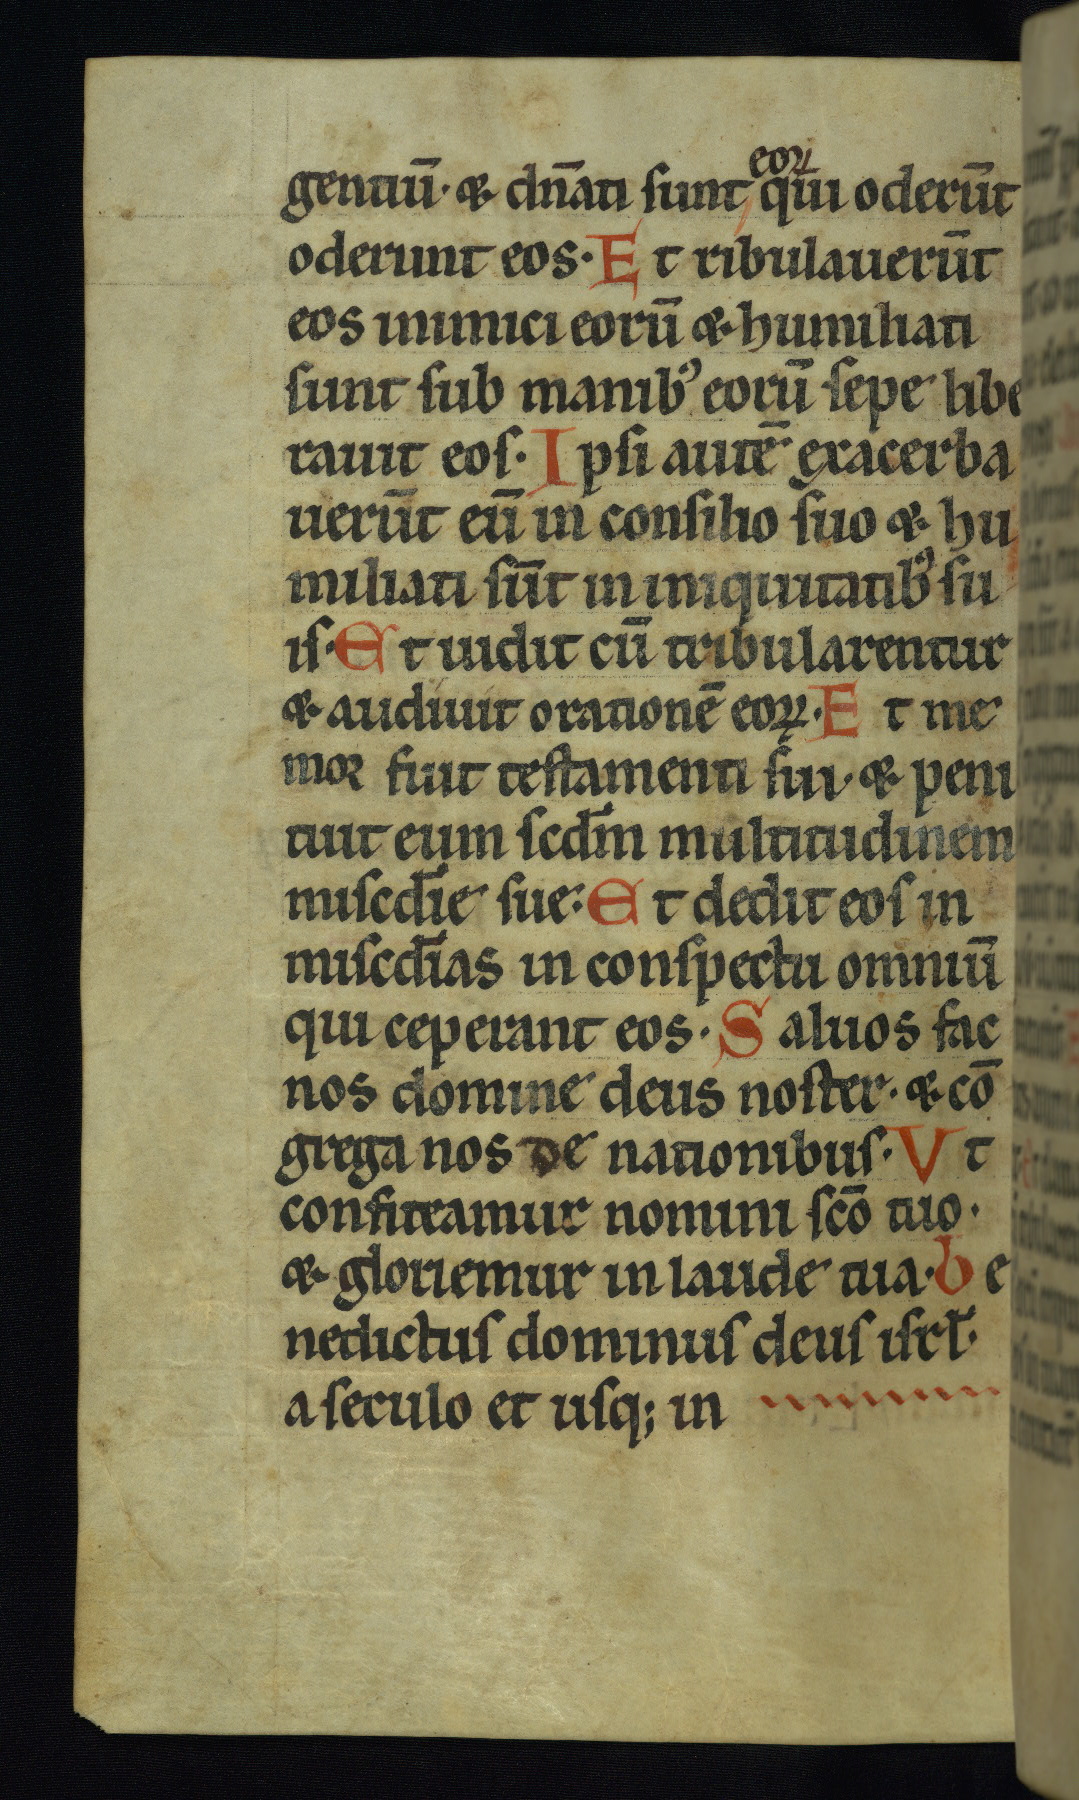 eoꝝ
gentiū· ⁊ dn̄ati sunt qui oderūt
oderunt eos· E t ribulauerūt
eos inimici eorū ⁊ humiliati
sunt sub manibꝰ eorū sepe libe
rauit eos· I psi autē exacerba
uerūt eū in consilio suo ⁊ hu
miliati sūt in iniquitatibꝰ su
is· E t uidit cū tribularentur
⁊ audiuit orationē eoꝝ· E t me
mor fuit testamenti sui· ⁊ peni
tuit eum scdm̄ multitudinem
miscdīe sue· E t dedit eos in
miscdīas in conspectu omniū
qui ceperant eos· S aluos fac
nos domine deus noster· ⁊ cō
grega nos de nationibus· V t
confiteamur nomini scō tuo·
⁊ gloriemur in laude tua· b e
nedictus dominus deus isrl̄·
a seculo et usq; in